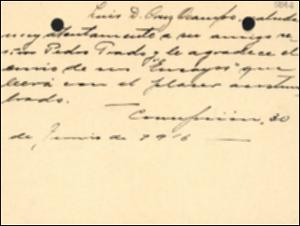 Luis D. Cruz Ocampo, saluda
muy atentamente a su amigo se-
ñor Pedro Prado y le agradece el
envío de sus "Ensayos" que
leerá con el placer acostum
brado.
Concepción, 30
de Junio de 1916